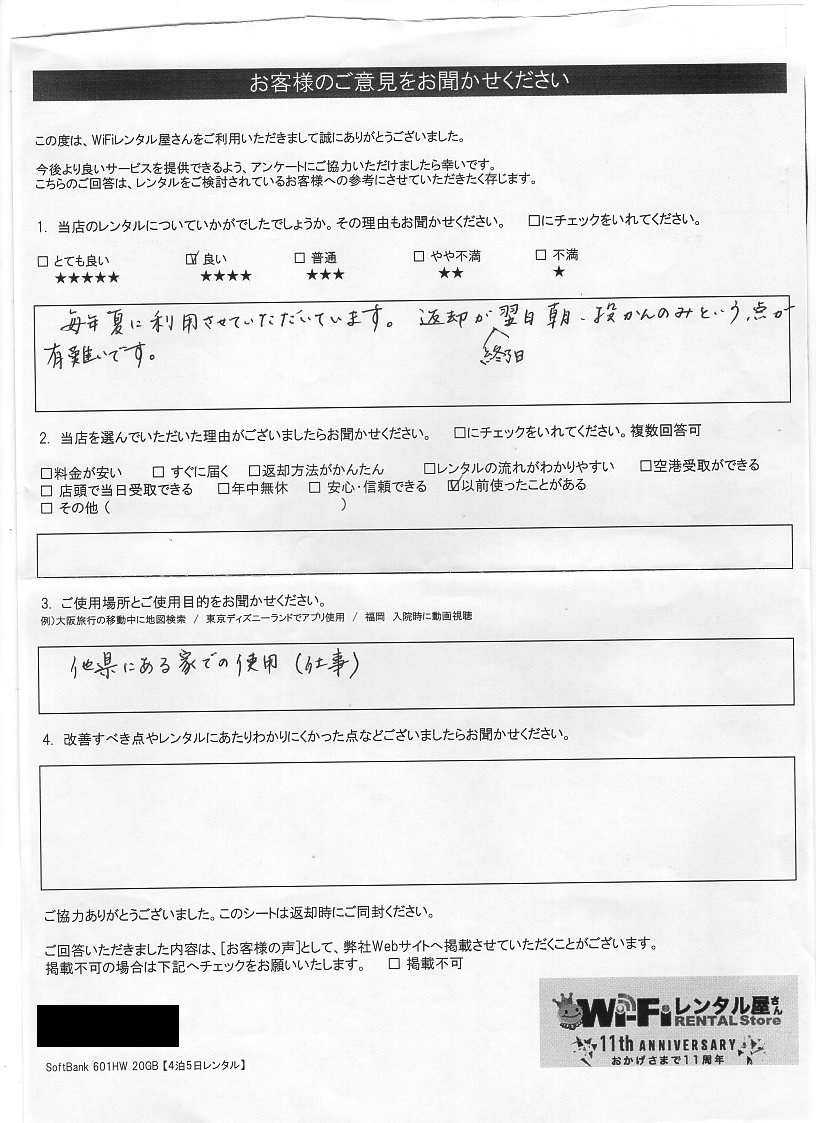 お客様のご意見をお聞かせください
この度は、WiFiレンタル屋さんをご利用いただきまして誠にありがとうございました。
今後より良いサービスを提供できるよう、アンケートにご協力いただけましたら幸いです。
こちらのご回答は、レンタルをご検討されているお客様への参考にさせていただきたく存じます。
1. 当店のレンタルについていかがでしたでしょうか。その理由もお聞かせください。 □にチェックをいれてください。
□ とても良い ☑ 良い □ 普通 □ やや不満 □ 不満
★★★★★ ★★★★ ★★★ ★★ ★
毎年夏に利用させていただいています。 返却が翌日朝、投かんのみという点が
終了日
有難いです。
2. 当店を選んでいただいた理由がございましたらお聞かせください。 □にチェックをいれてください。複数回答可
□料金が安い □ すぐに届く □返却方法がかんたん □レンタルの流れがわかりやすい □空港受取ができる
□ 店頭で当日受取できる □年中無休 □ 安心・信頼できる ☑以前使ったことがある
□ その他 ( )
3. ご使用場所とご使用目的をお聞かせください。
例)大阪旅行の移動中に地図検索 / 東京ディズニーランドでアプリ使用 / 福岡 入院時に動画視聴
他県にある家での使用 (仕事)
4. 改善すべき点やレンタルにあたりわかりにくかった点などございましたらお聞かせください。
ご協力ありがとうございました。このシートは返却時にご同封ください。
ご回答いただきました内容は、[お客様の声]として、弊社Webサイトへ掲載させていただくことがございます。
掲載不可の場合は下記へチェックをお願いいたします。 □ 掲載不可
Wi-Fiレンタル屋さん
RENTAL Store
11th ANNIVERSARY
おかげさまで11周年
SoftBank 601HW 20GB【4泊5日レンタル】